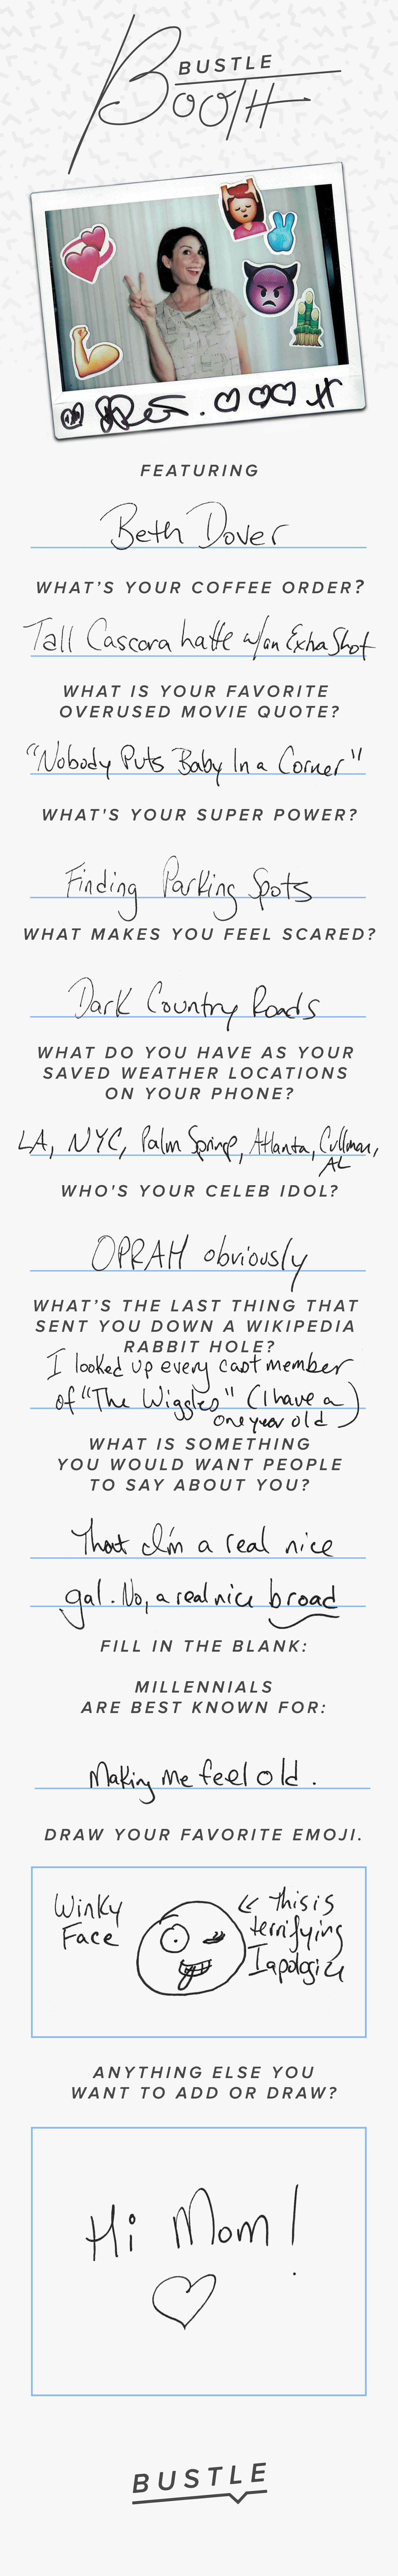 BUSTLE
BOOTH
FEATURING
Beth Dover
WHAT'S YOUR COFFEE ORDER?
Tall Cascara latte w/an Extra Shot
WHAT IS YOUR FAVORITE
OVERUSED MOVIE QUOTE?
"Nobody Puts Baby In a Corner"
WHAT'S YOUR SUPER POWER?
Finding Parking Spots
WHAT MAKES YOU FEEL SCARED?
Dark Country Roads
WHAT DO YOU HAVE AS YOUR
SAVED WEATHER LOCATIONS
ON YOUR PHONE?
LA, NYC, Palm Springs, Atlanta, Cullman,
AL
WHO'S YOUR CELEB IDOL?
OPRAH obviously
WHAT'S THE LAST THING THAT
SENT YOU DOWN A WIKIPEDIA
RABBIT HOLE?
I looked up every cast member
of "The Wiggles" (I have a
one year old)
WHAT IS SOMETHING
YOU WOULD WANT PEOPLE
TO SAY ABOUT YOU?
That I'm a real nice
gal. No, a real nice broad
FILL IN THE BLANK:
MILLENNIALS
ARE BEST KNOWN FOR:
Making me feel old.
DRAW YOUR FAVORITE EMOJI.
Winky
Face
this is
terrifying
I apologize
ANYTHING ELSE YOU
WANT TO ADD OR DRAW?
Hi Mom!
BUSTLE